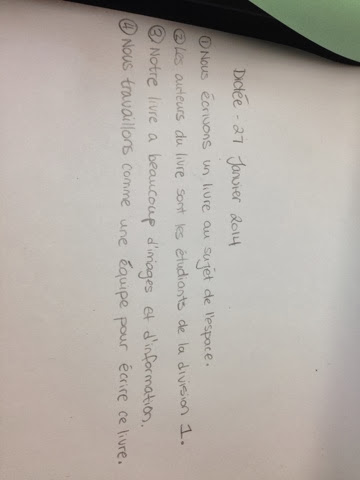 Dictée - 27 Janvier 2014
① Nous écrivons un livre au sujet de l'espace.
② Les auteurs du livre sont les étudiants de la division 1.
③ Notre livre a beaucoup d'images et d'information.
④ Nous travaillons comme une équipe pour écrire ce livre.